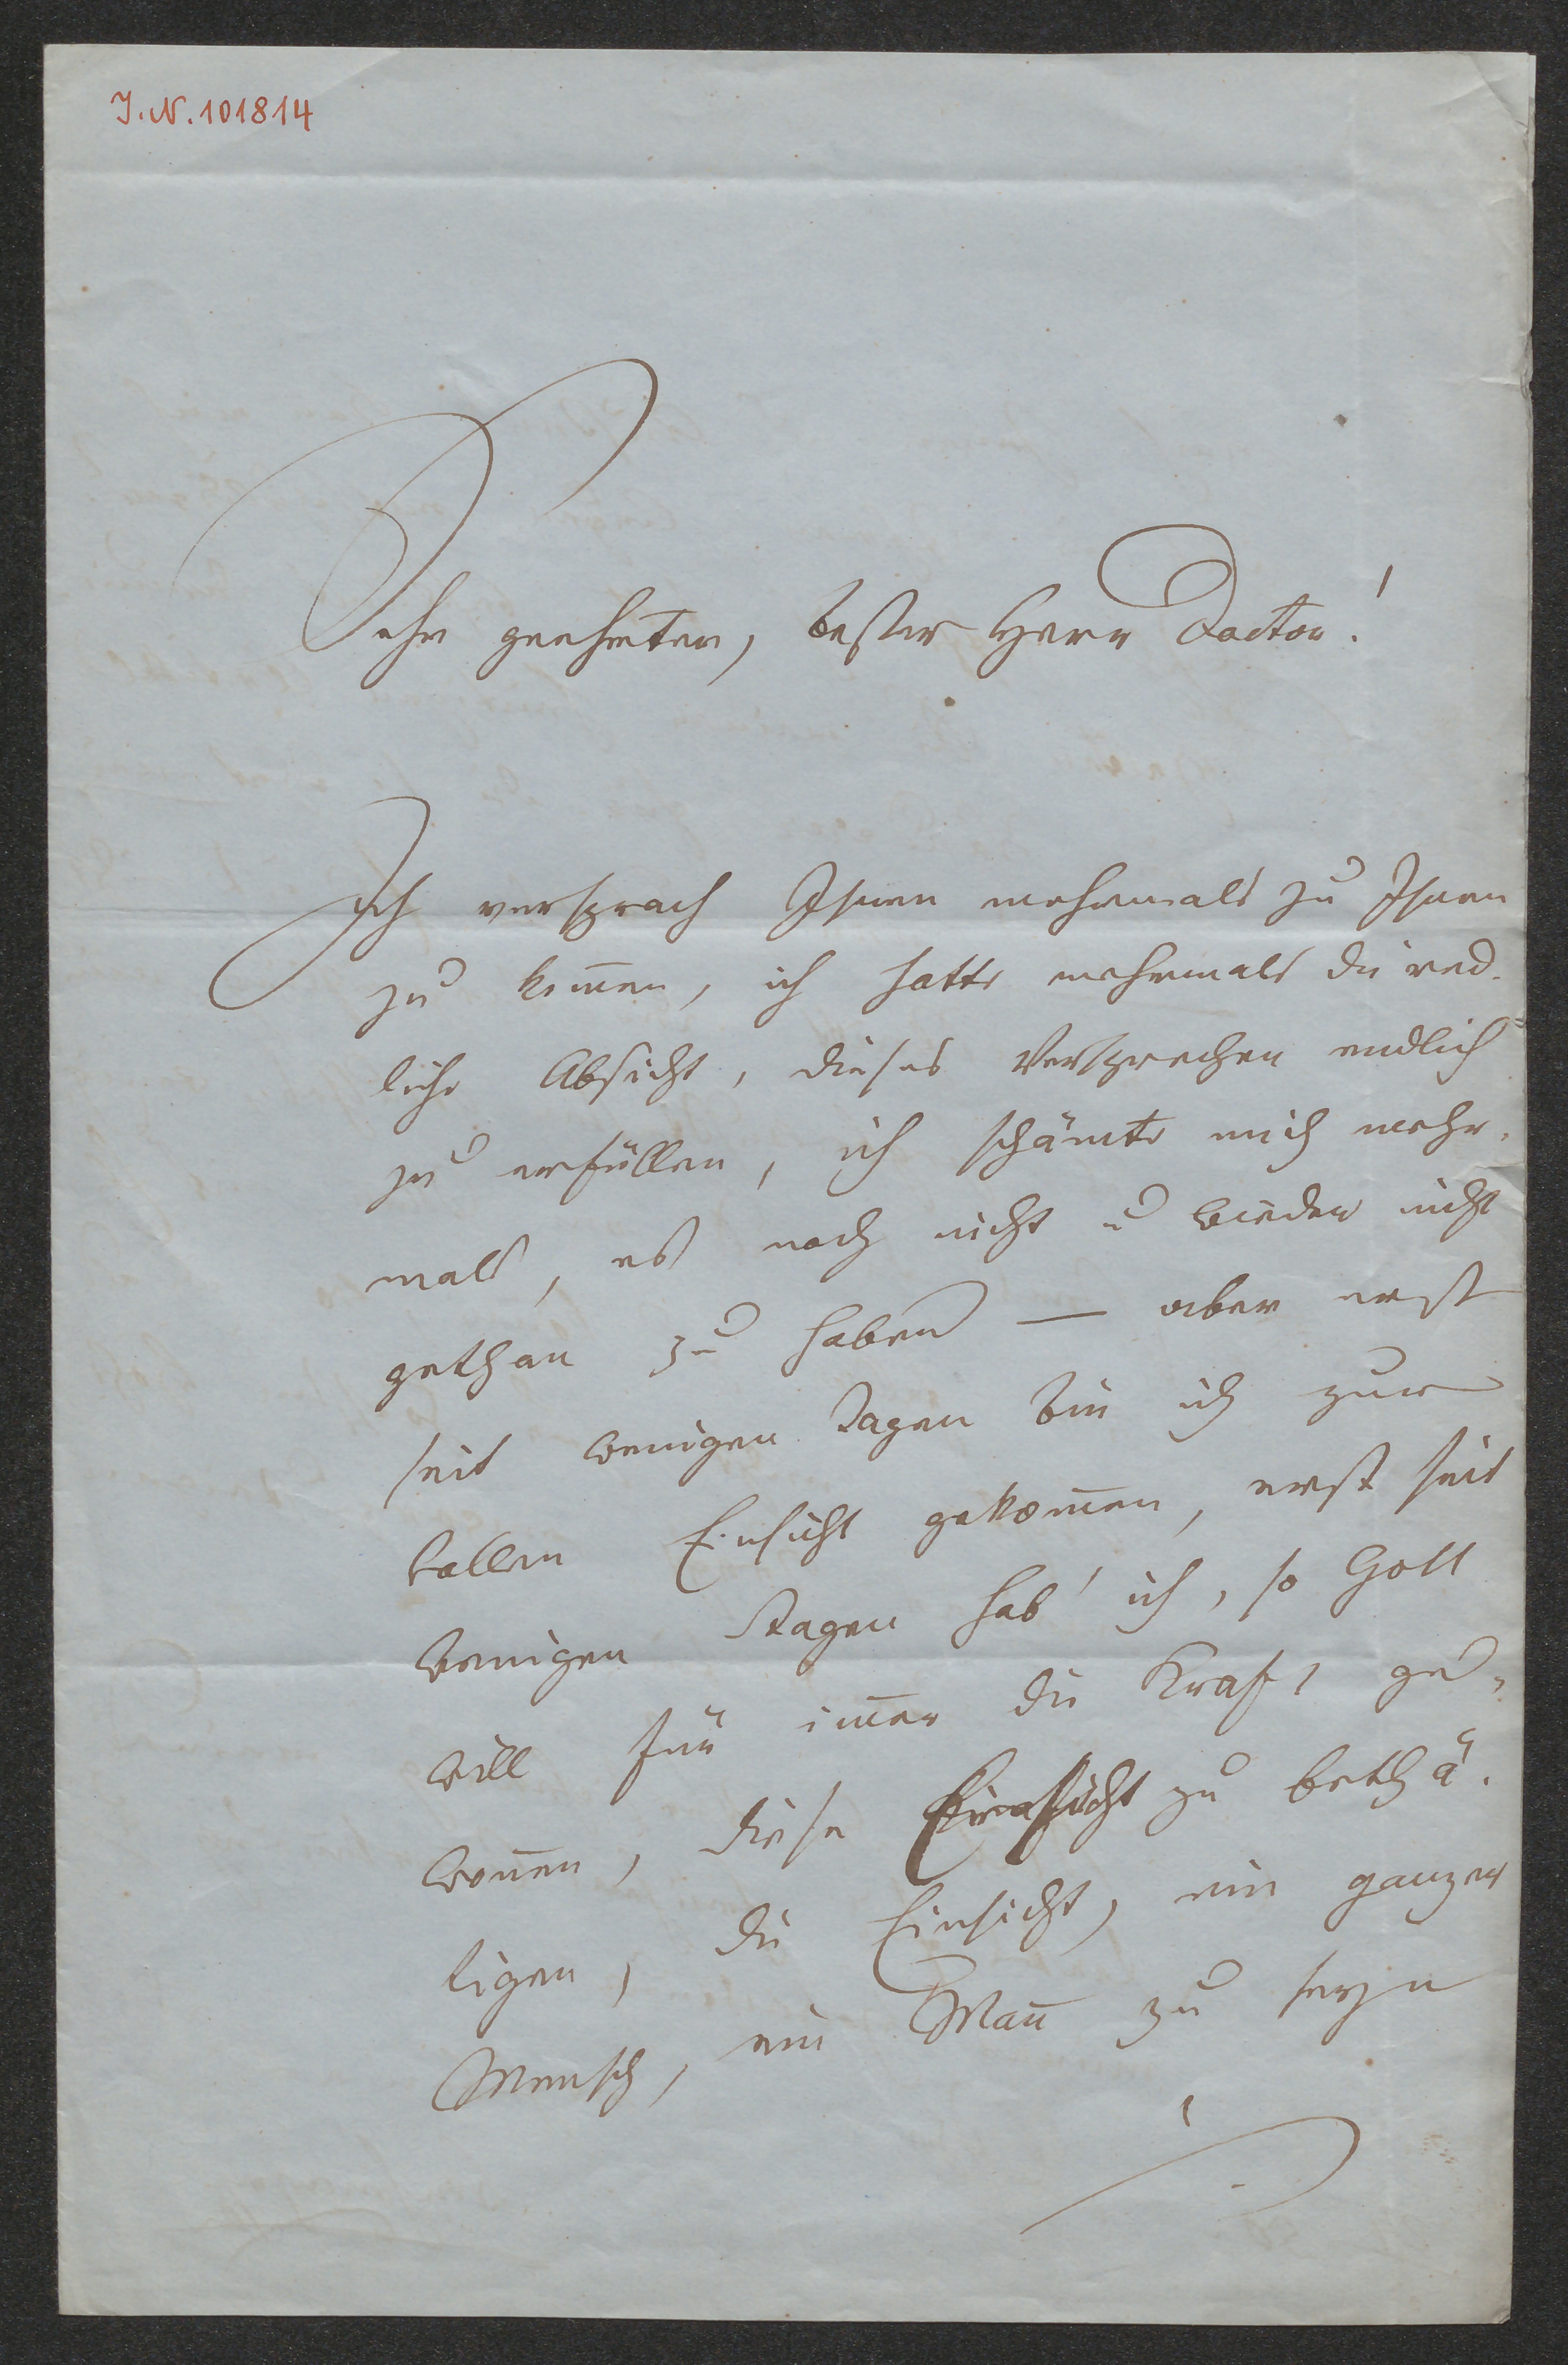 I.N. 101814
Sehr geehrter, bester Herr Doctor!
Ich versprach Ihnen mehrmals zu Ihnen
zu kom̄en, ich hatte mehrmals die red-
liche Absicht, dieses Versprechen endlich
zu erfüllen, ich schämte mich mehr-
mals, es noch nicht u wieder nicht
gethan zu haben — aber erst
seit wenigen Tagen bin ich zur
vollen Einsicht gekom̄en, erst seit
wenigen Tagen hab' ich, so Gott
will für im̄er die Kraft ge-
won̄en, diese Einsicht zu bethä-
tigen, die Einsicht, ein ganzer
Mensch, ein Man̄ zu seyn